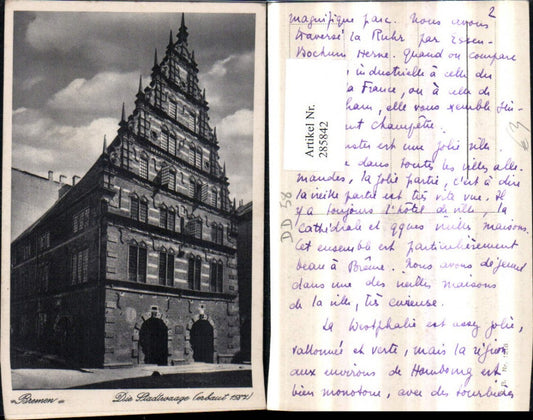 Bremen
Die Stadtwaage (erbaut 1587)
2
magnifique parc. Nous avons
traversé la Ruhr par Essen-
Bochum Herne. quand on compare
industrielle à celle du
la France, ou à celle de
elle vous semble
champêtre.
est une jolie ville.
dans toutes les villes alle-
mandes, la jolie partie, c'est à dire
la vieille partie est très vite vue. Il
y a toujours l'hôtel de ville, la
Cathédrale et qques vieilles maisons.
Cet ensemble est particulièrement
beau à Brême. Nous avons déjeuné
dans une des vieilles maisons
de la ville, très curieuse.
La Westphalie est assez jolie,
vallonnée et verte, mais la région
aux environs de Hambourg est
bien monotone, avec des tourbières
Artikel Nr.
285842
DD 58
€ 3